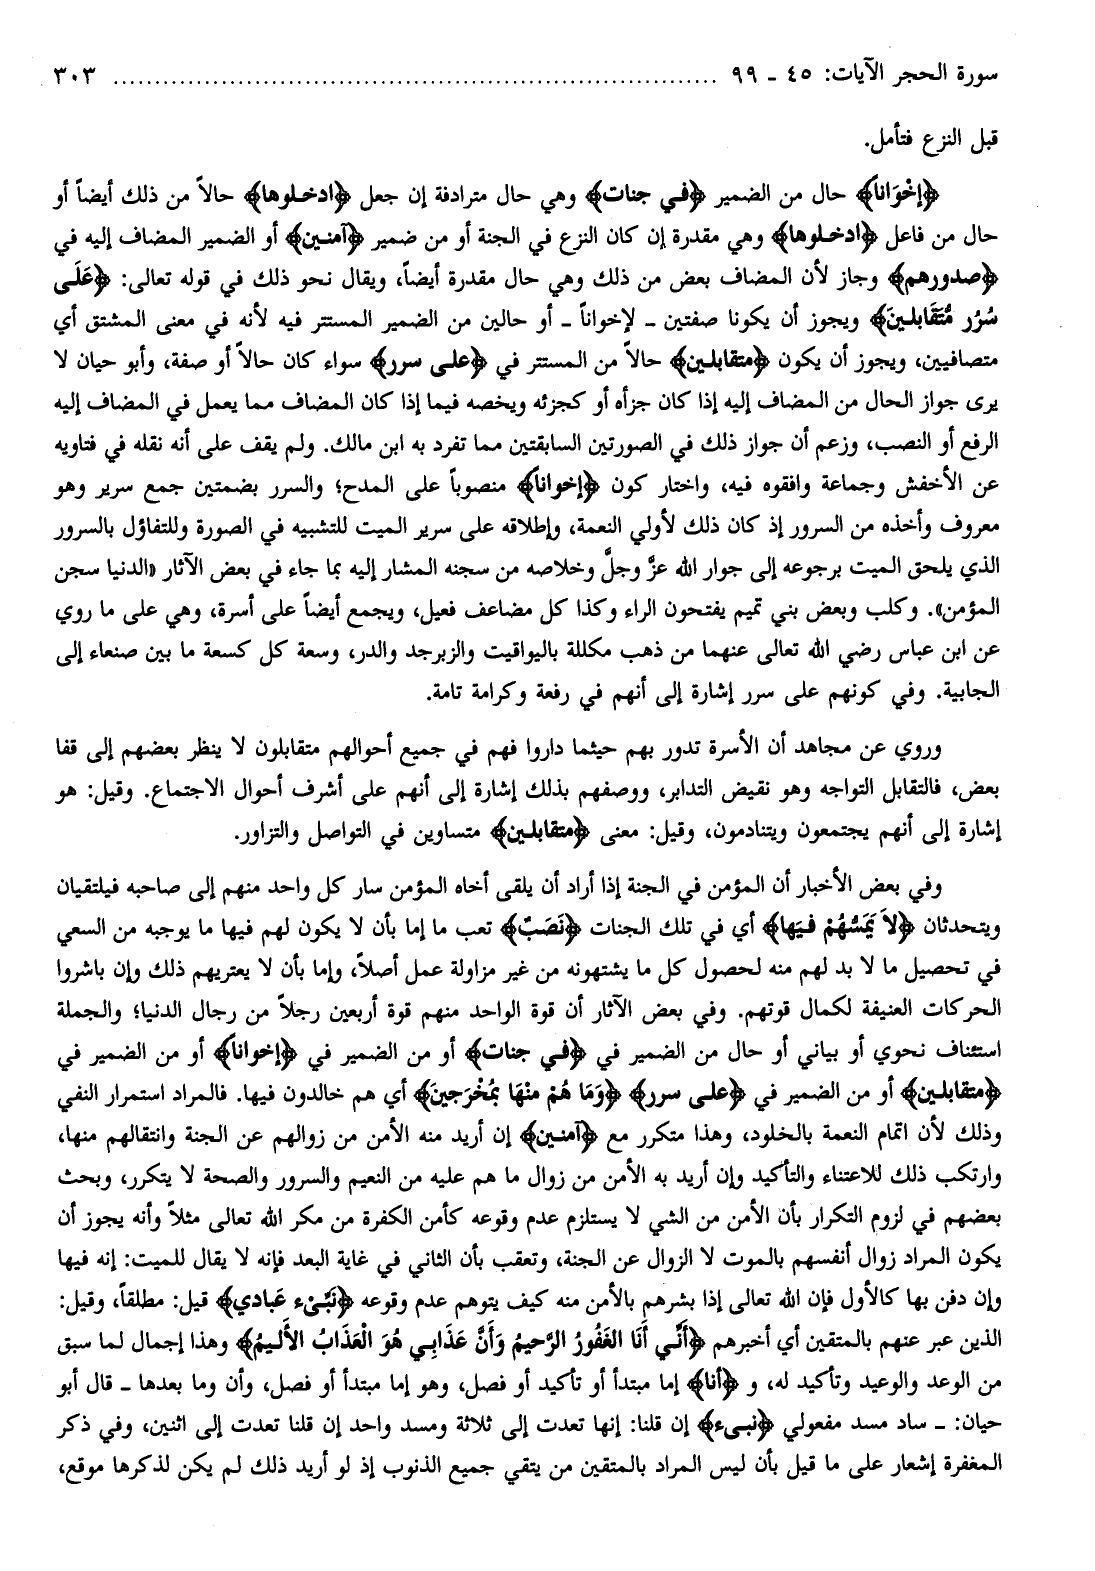 سورة الحجر الآيات: ٤٥ ـ ٩٩ ........................................................................ ٣٠٣
قبل النزع فتأمل.
﴿إخْوَاناً﴾ حال من الضمير ﴿في جنات﴾ وهي حال مترادفة إن جعل ﴿ادخلوها﴾ حالاً من ذلك أيضاً أو
حال من فاعل ﴿ادخلوها﴾ وهي مقدرة إن كان النزع في الجنة أو من ضمير ﴿آمنين﴾ أو الضمير المضاف إليه في
﴿صدورهم﴾ وجاز لأن المضاف بعض من ذلك وهي حال مقدرة أيضاً، ويقال نحو ذلك في قوله تعالى: ﴿عَلَى
سُرُر مُتَقَابلينَ﴾ ويجوز أن يكونا صفتين ـ لإخواناً ـ أو حالين من الضمير المستتر فيه لأنه في معنى المشتق أي
متصافيين، ويجوز أن يكون ﴿متقابلين﴾ حالاً من المستتر في ﴿على سرر﴾ سواء كان حالاً أو صفة، وأبو حيان لا
يرى جواز الحال من المضاف إليه إذا كان جزأه أو كجزئه ويخصه فيما إذا كان المضاف مما يعمل في المضاف إليه
الرفع أو النصب، وزعم أن جواز ذلك في الصورتين السابقتين مما تفرد به ابن مالك. ولم يقف على أنه نقله في فتاويه
عن الأخفش وجماعة وافقوه فيه، واختار كون ﴿إخواناً﴾ منصوباً على المدح؛ والسرر بضمتين جمع سرير وهو
معروف وأخذه من السرور إذ كان ذلك لأولي النعمة، وإطلاقه على سرير الميت للتشبيه في الصورة وللتفاؤل بالسرور
الذي يلحق الميت برجوعه إلى جوار الله عزَّ وجلَّ وخلاصه من سجنه المشار إليه بما جاء في بعض الآثار «الدنيا سجن
المؤمن». وكلب وبعض بني تميم يفتحون الراء وكذا كل مضاعف فعيل، ويجمع أيضاً على أسرة، وهي على ما روي
عن ابن عباس رضي الله تعالى عنهما من ذهب مكللة باليواقيت والزبرجد والدر، وسعة كل كسعة ما بين صنعاء إلى
الجابية. وفي كونهم على سرر إشارة إلى أنهم في رفعة وكرامة تامة.
وروي عن مجاهد أن الأسرة تدور بهم حيثما داروا فهم في جميع أحوالهم متقابلون لا ينظر بعضهم إلى قفا
بعض، فالتقابل التواجه وهو نقيض التدابر، ووصفهم بذلك إشارة إلى أنهم على أشرف أحوال الاجتماع. وقيل: هو
إشارة إلى أنهم يجتمعون ويتنادمون، وقيل: معنى ﴿متقابلين﴾ متساوين في التواصل والتزاور.
وفي بعض الأخبار أن المؤمن في الجنة إذا أراد أن يلقى أخاه المؤمن سار كل واحد منهم إلى صاحبه فيلتقيان
ويتحدثان ﴿لاَ يَمَسُّهُمْ فيَها﴾ أي في تلك الجنات ﴿نَصَبٌ﴾ تعب ما إما بأن لا يكون لهم فيها ما يوجبه من السعي
في تحصيل ما لا بد لهم منه لحصول كل ما يشتهونه من غير مزاولة عمل أصلاً، وإما بأن لا يعتريهم ذلك وإن باشروا
الحركات العنيفة لكمال قوتهم. وفي بعض الآثار أن قوة الواحد منهم قوة أربعين رجلاً من رجال الدنيا؛ والجملة
استئناف نحوي أو بياني أو حال من الضمير في ﴿في جنات﴾ أو من الضمير في ﴿إخواناً﴾ أو من الضمير في
﴿متقابلين﴾ أو من الضمير في ﴿على سرر﴾ ﴿وَمَا هُمْ منْهَا بمُخْرَجينَ﴾ أي هم خالدون فيها. فالمراد استمرار النفي
وذلك لأن اتمام النعمة بالخلود، وهذا متكرر مع ﴿آمنين﴾ إن أريد منه الأمن من زوالهم عن الجنة وانتقالهم منها،
وارتكب ذلك للاعتناء والتأكيد وإن أريد به الأمن من زوال ما هم عليه من النعيم والسرور والصحة لا يتكرر، وبحث
بعضهم في لزوم التكرار بأن الأمن من الشي لا يستلزم عدم وقوعه كأمن الكفرة من مكر الله تعالى مثلاً وأنه يجوز أن
يكون المراد زوال أنفسهم بالموت لا الزوال عن الجنة، وتعقب بأن الثاني في غاية البعد فإنه لا يقال للميت: إنه فيها
وإن دفن بها كالأول فإن الله تعالى إذا بشرهم بالأمن منه كيف يتوهم عدم وقوعه ﴿نَبِّىء عبَادي﴾ قيل: مطلقاً، وقيل:
الذين عبر عنهم بالمتقين أي أخبرهم ﴿أَنِّي أَنَا الغَفُورُ الرَّحيمُ وَأَنَّ عَذَابي هُوَ الْعَذَابُ الأَليمُ﴾ وهذا إجمال لما سبق
من الوعد والوعيد وتأكيد له، و ﴿أنا﴾ إما مبتدأ أو تأكيد أو فصل، وهو إما مبتدأ أو فصل، وأن وما بعدها ـ قال أبو
حيان: ـ ساد مسد مفعولي ﴿نبىء﴾ إن قلنا: إنها تعدت إلى ثلاثة ومسد واحد إن قلنا تعدت إلى اثنين، وفي ذكر
المغفرة إشعار على ما قيل بأن ليس المراد بالمتقين من يتقي جميع الذنوب إذ لو أريد ذلك لم يكن لذكرها موقع،